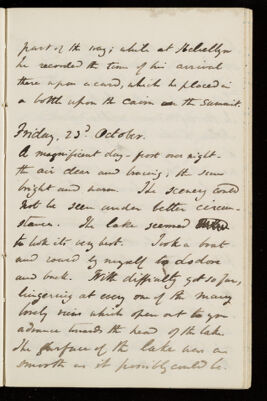 part of the way; while at Helvellyn
he recorded the time of his arrival
there upon a card, which he placed in
a bottle upon the cairn on the summit.
Friday, 23d October.
A magnificent day - frost over night -
the air clear and bracing; the sun
bright and warm. The scenery could
not be seen under better circum-
stances. The lake seemed
to look its very best. Took a boat
and rowed by myself to Lodore
and back. With difficulty got so far,
lingering at every one of the many
lovely views which open out to you
advance towards the head of the lake.
The surface of the lake was as
smooth as it possibly could be.